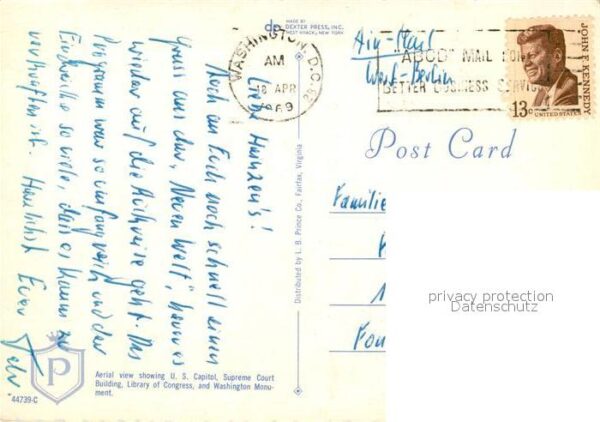 MADE BY
dp DEXTER PRESS, INC.
WEST NYACK, NEW YORK
WASHINGTON, D.C.
AM
18 APR
1969
Air-Mail
West-Berlin
MAIL
BETTER BUSINESS SERVICE
JOHN F. KENNEDY
13c
UNITED STATES
Post Card
Familie
privacy protection
Datenschutz
Distributed by L. B. Prince Co., Fairfax, Virginia
Noch an Euch noch schnell einen
Gruss aus der „Neuen Welt",
wieder auf die Heimreise geht. Das
Programm war so umfangreich und der
Eindrücke so viele, dass es kaum zu
verkraften ist. Herzlichst Euer
P
Aerial view showing U. S. Capitol, Supreme Court
Building, Library of Congress, and Washington Monu-
ment.
44739-C